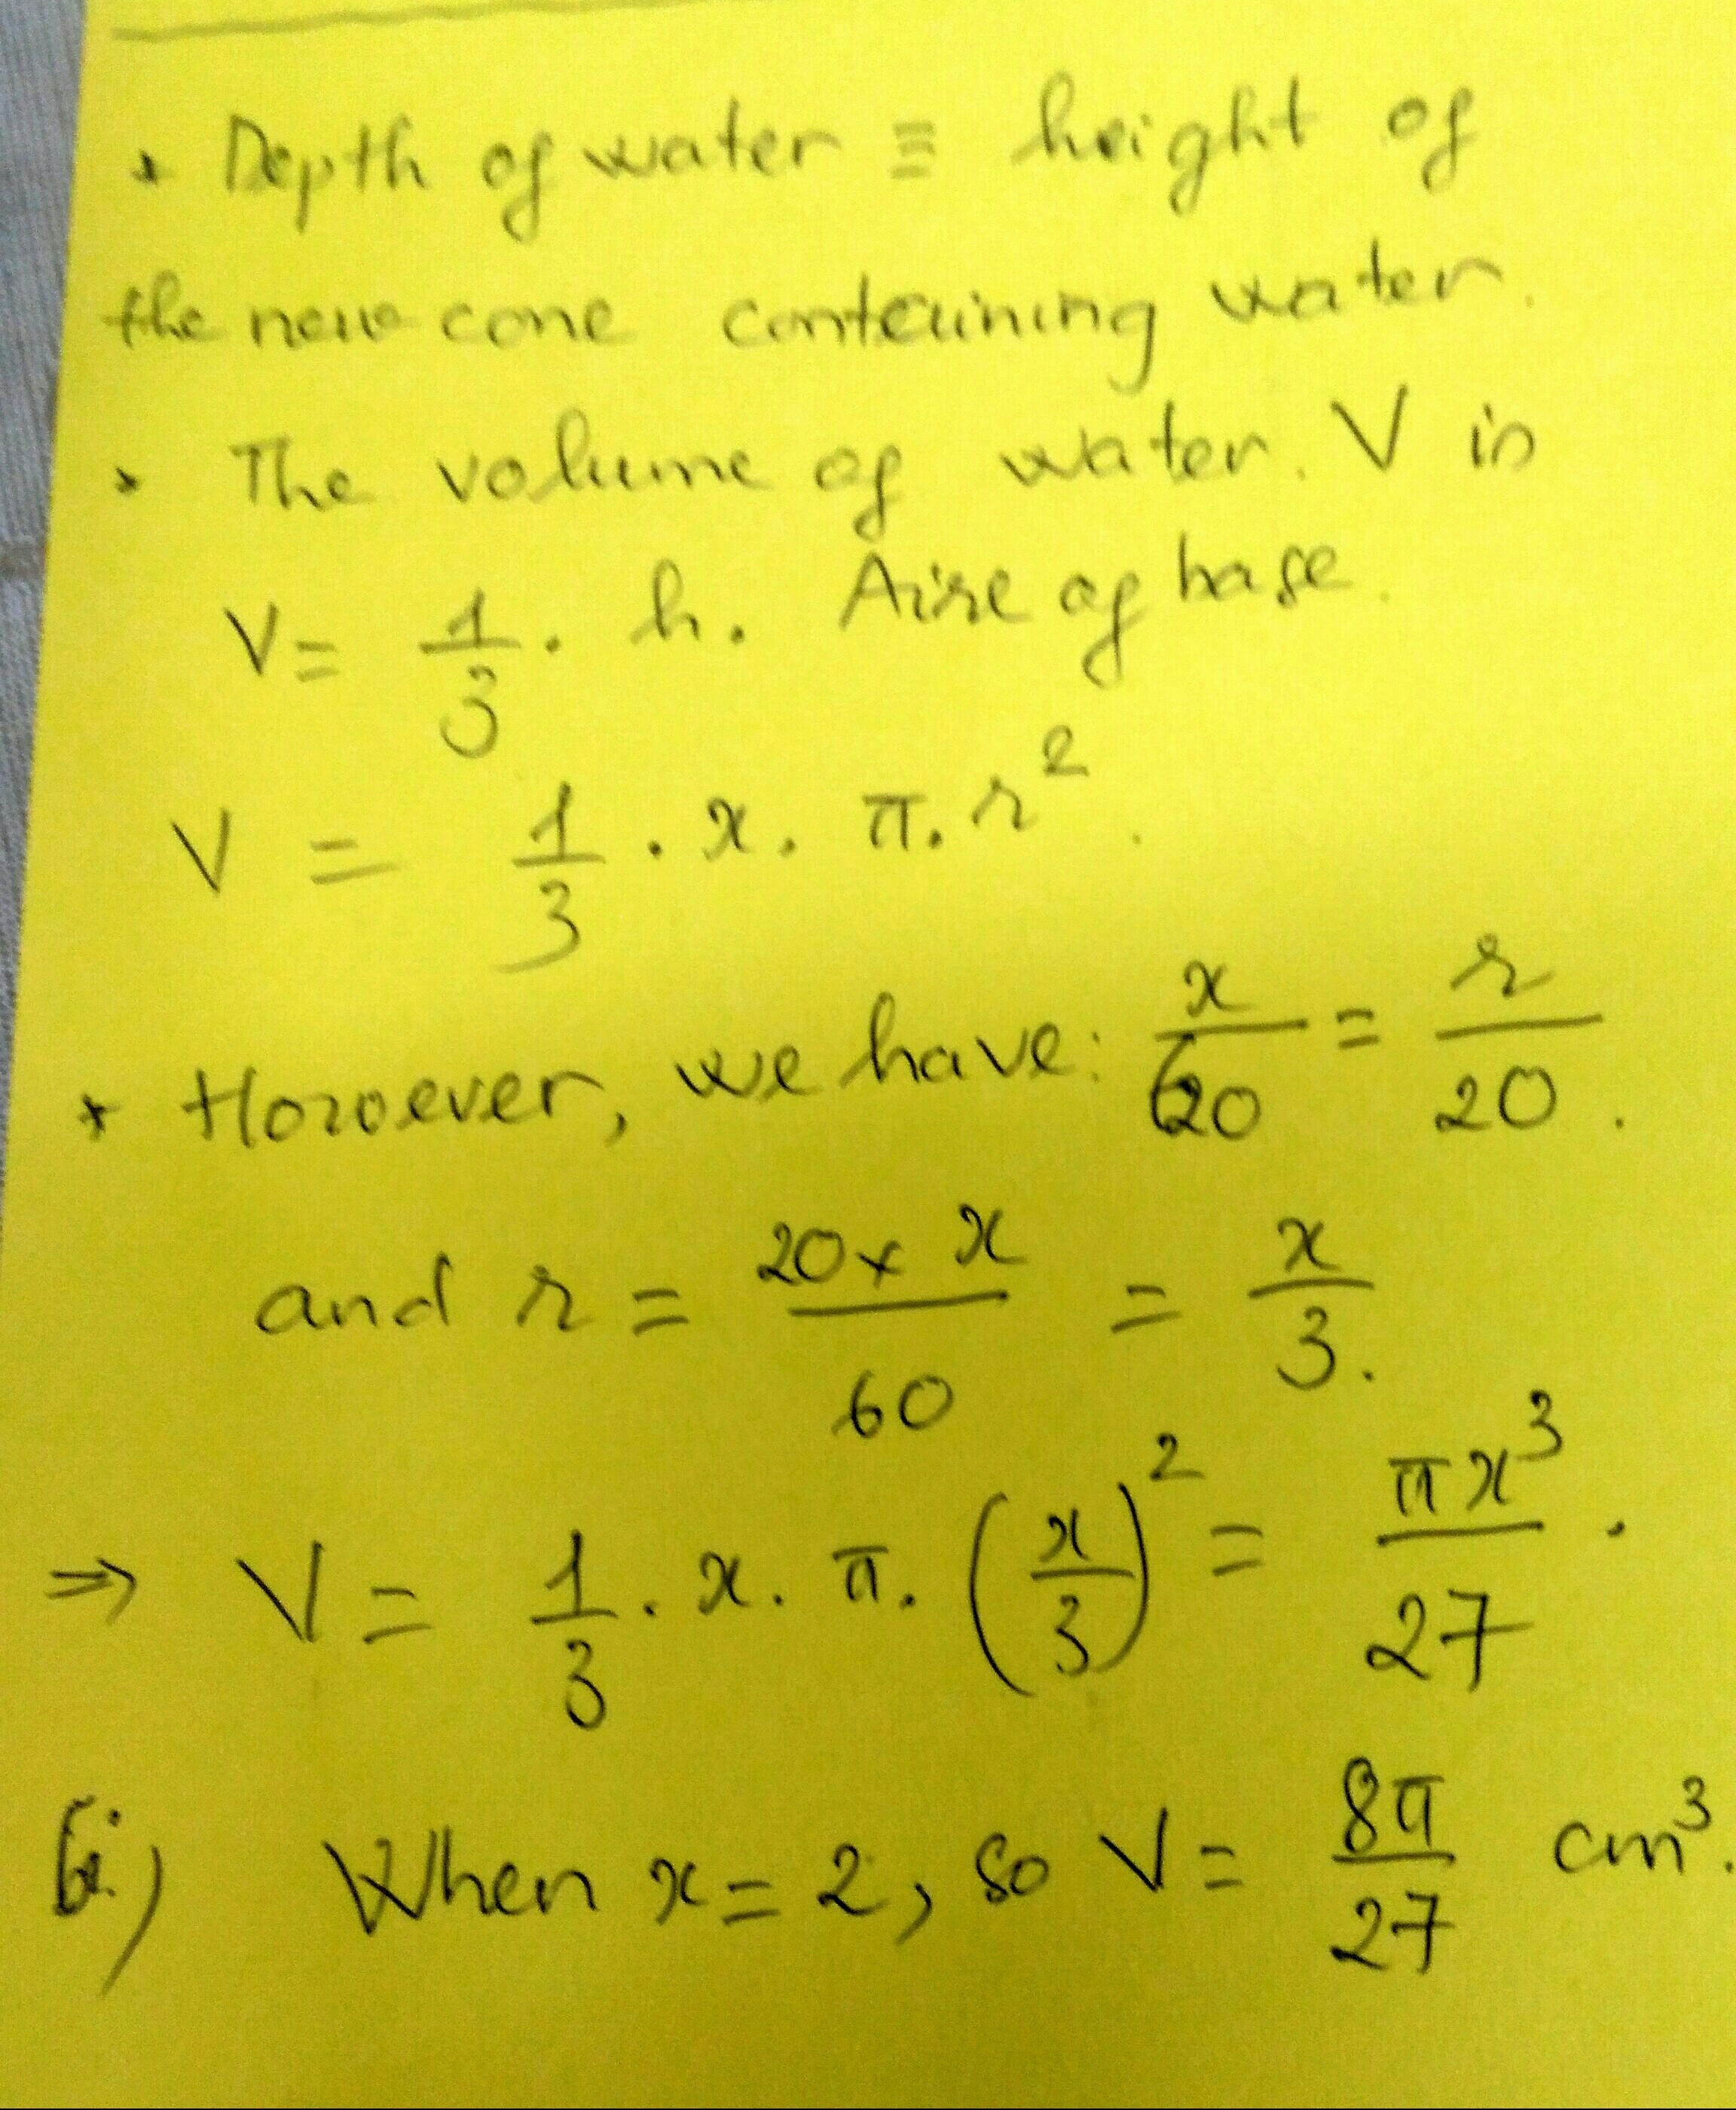 * Depth of water ≡ height of
the new cone containing water.
* The volume of water. V is
V = 1/3 . h. Aire of base.
V = 1/3 . x. π. r²
* However, we have: x/60 = r/20.
and r = 20 × x/60 = x/3.
⇒ V = 1/3 . x. π. (x/3)² = πx³/27.
When x = 2, so V = 8π/27 cm³.